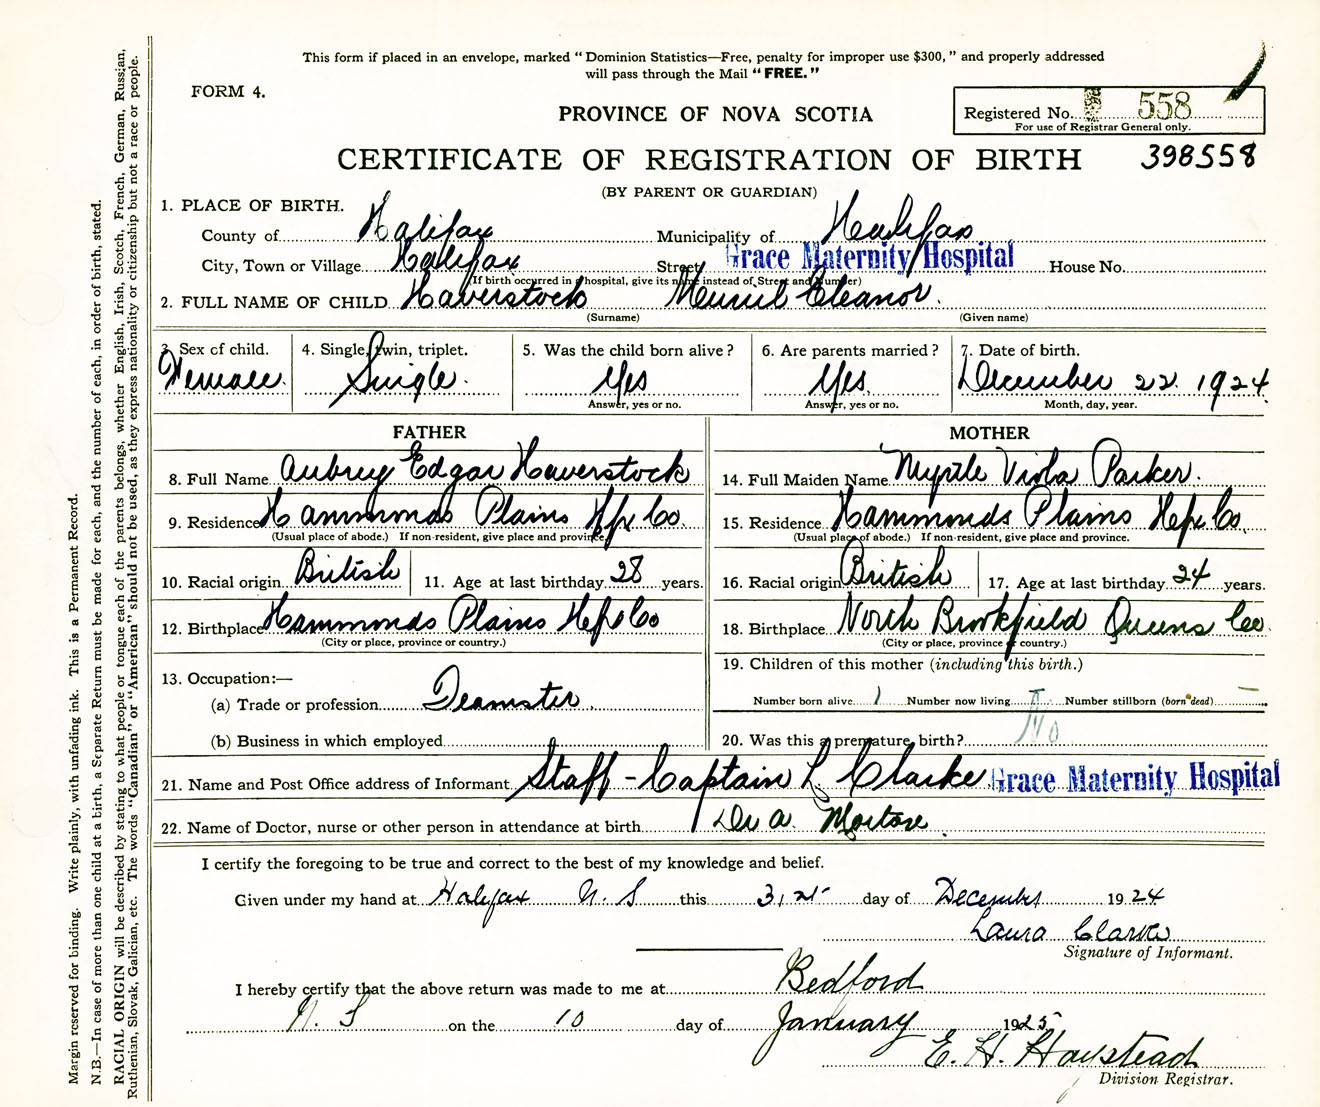 This form if placed in an envelope, marked "Dominion Statistics—Free, penalty for improper use $300," and properly addressed
will pass through the Mail "FREE."
FORM 4.
PROVINCE OF NOVA SCOTIA
Registered No. 558
For use of Registrar General only.
CERTIFICATE OF REGISTRATION OF BIRTH 398558
(BY PARENT OR GUARDIAN)
1. PLACE OF BIRTH.
County of Halifax Municipality of Halifax
City, Town or Village Halifax Street Grace Maternity Hospital House No.
(If birth occurred in a hospital, give its name instead of Street and Number)
2. FULL NAME OF CHILD Haverstock Eleanor.
(Surname) (Given name)
3. Sex of child. 4. Single, twin, triplet. 5. Was the child born alive? 6. Are parents married? 7. Date of birth.
Female. Single. Yes Yes. December 22 1924
Answer, yes or no. Answer, yes or no. Month, day, year.
FATHER MOTHER
8. Full Name Aubrey Edgar Haverstock 14. Full Maiden Name Myrtle Viola Parker.
9. Residence Hammonds Plains Hfx Co. 15. Residence Hammonds Plains Hfx Co.
(Usual place of abode.) If non-resident, give place and province. (Usual place of abode.) If non-resident, give place and province.
10. Racial origin British 11. Age at last birthday 28 years. 16. Racial origin British 17. Age at last birthday 24 years.
12. Birthplace Hammonds Plains Hfx Co 18. Birthplace North Brookfield Queens Co.
(City or place, province or country.) (City or place, province or country.)
13. Occupation:— 19. Children of this mother (including this birth.)
(a) Trade or profession Teamster. Number born alive 1 Number now living Number stillborn (born dead) —
(b) Business in which employed 20. Was this a premature birth? No
21. Name and Post Office address of Informant Staff-Captain L Clarke Grace Maternity Hospital
22. Name of Doctor, nurse or other person in attendance at birth Dr A.
I certify the foregoing to be true and correct to the best of my knowledge and belief.
Given under my hand at Halifax N. S this 31st day of December 1924
Laura Clarke
Signature of Informant.
I hereby certify that the above return was made to me at Bedford
N. S on the 10 day of January 1925
E. H.
Division Registrar.
Margin reserved for binding. Write plainly, with unfading ink. This is a Permanent Record.
N.B.—In case of more than one child at a birth, a Separate Return must be made for each, and the number of each, in order of birth, stated.
RACIAL ORIGIN will be described by stating to what people or tongue each of the parents belongs, whether English, Irish, Scotch, French, German, Russian,
Ruthenian, Slovak, Galician, etc. The words "Canadian" or "American" should not be used, as they express nationality or citizenship but not a race or people.